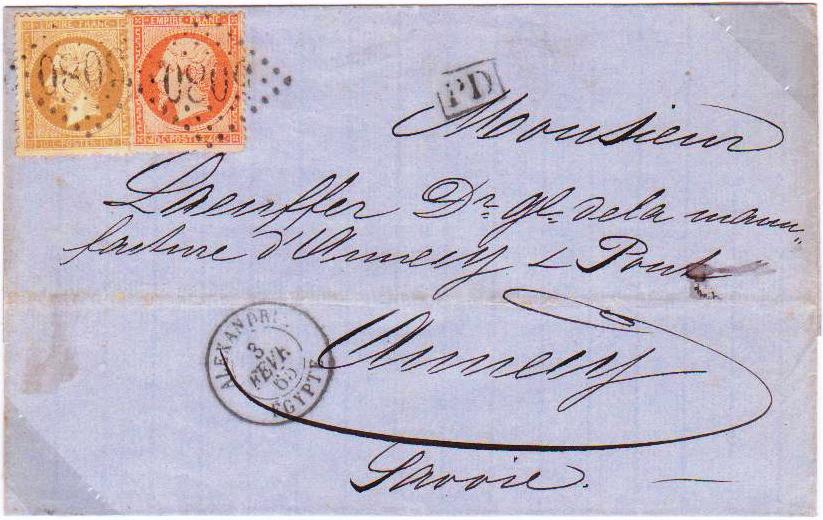 EMPIRE FRANC. EMPIRE FRANC.
5080 5080
POSTES POSTES
PD
Monsieur
Laeuffer Dr. Gl. de la manu„
facture d'Annecy & Pont
ALEXANDRIE
3
FEVR.
65
EGYPTE
Annecy
Savoie.